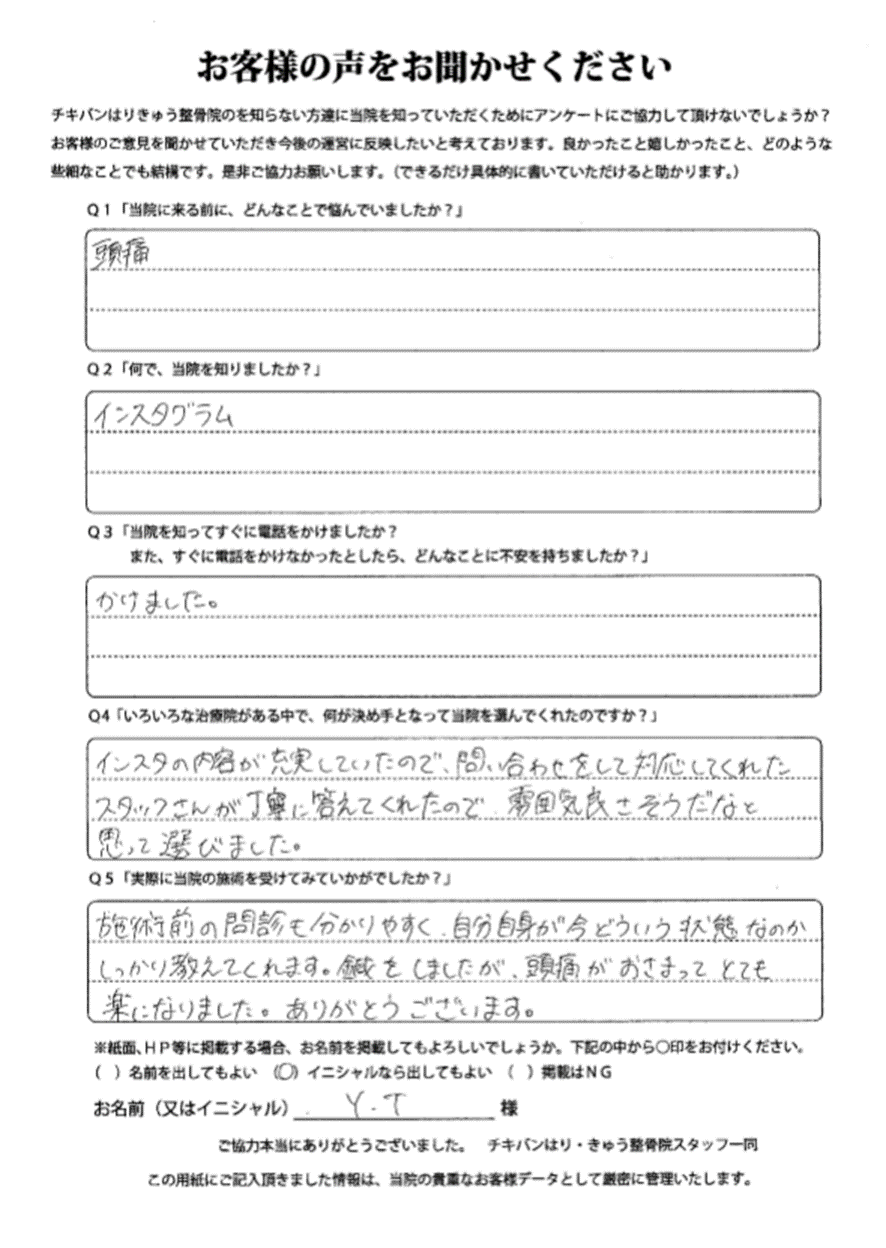 お客様の声をお聞かせください
チキバンはりきゅう整骨院のを知らない方達に当院を知っていただくためにアンケートにご協力して頂けないでしょうか？
お客様のご意見を聞かせていただき今後の運営に反映したいと考えております。良かったこと嬉しかったこと、どのような
些細なことでも結構です。是非ご協力お願いします。（できるだけ具体的に書いていただけると助かります。）
Q１「当院に来る前に、どんなことで悩んでいましたか？」
頭痛
Q２「何で、当院を知りましたか？」
インスタグラム
Q３「当院を知ってすぐに電話をかけましたか？
また、すぐに電話をかけなかったとしたら、どんなことに不安を持ちましたか？」
かけました。
Q4「いろいろな治療院がある中で、何が決め手となって当院を選んでくれたのですか？」
インスタの内容が充実していたので、問い合わせをして対応してくれた
スタッフさんが丁寧に答えてくれたので、雰囲気良さそうだなと
思って選びました。
Q５「実際に当院の施術を受けてみていかがでしたか？」
施術前の問診も分かりやすく、自分自身が今どういう状態なのか
しっかり教えてくれます。鍼をしましたが、頭痛がおさまってとても
楽になりました。ありがとうございます。
※紙面、ＨＰ等に掲載する場合、お名前を掲載してもよろしいでしょうか。下記の中から〇印をお付けください。
（ ）名前を出してもよい （〇）イニシャルなら出してもよい （ ）掲載はＮＧ
お名前（又はイニシャル） Y.T 様
ご協力本当にありがとうございました。 チキバンはり・きゅう整骨院スタッフ一同
この用紙にご記入頂きました情報は、当院の貴重なお客様データとして厳密に管理いたします。